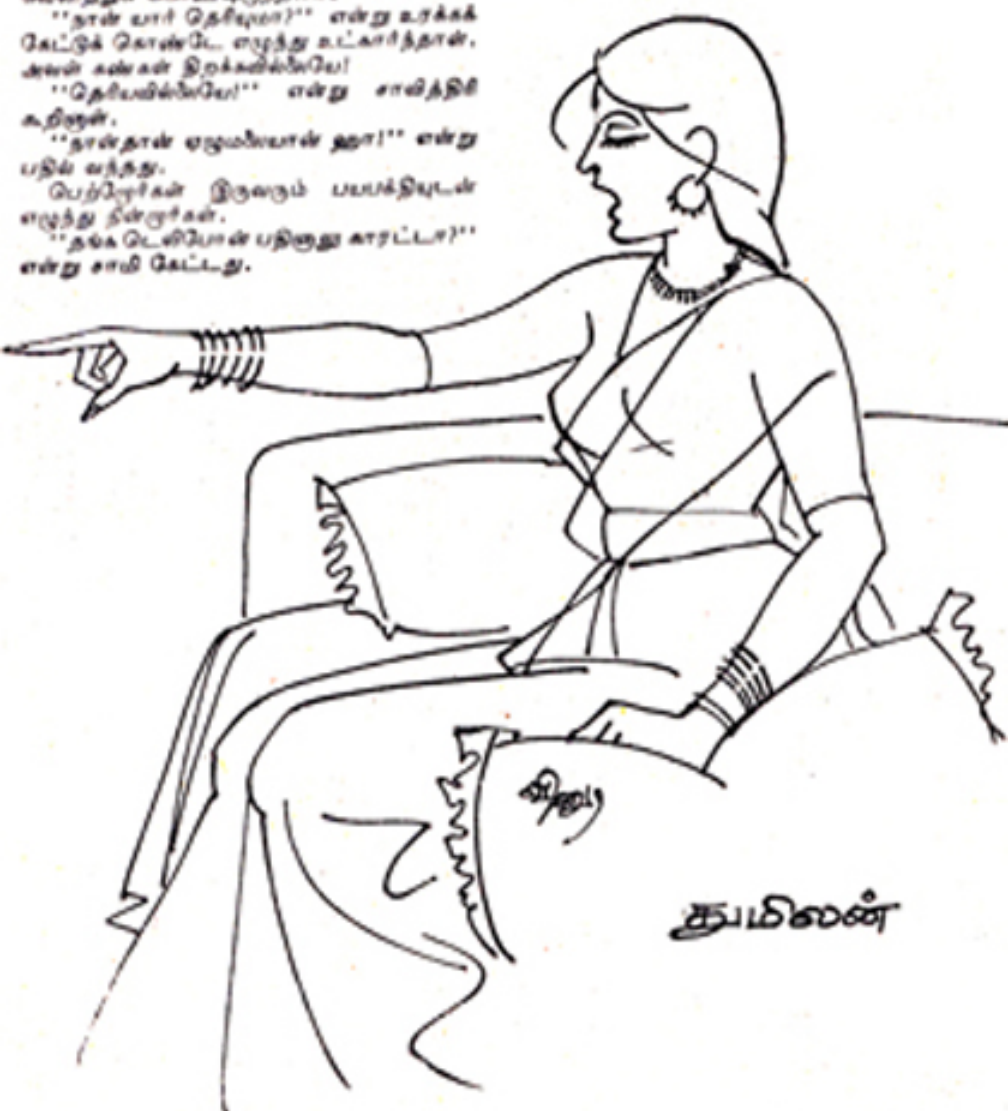 "நான் யார் தெரியுமா?" என்று உரக்கக்
கேட்டுக் கொண்டே எழுந்து உட்கார்ந்தாள்.
அவள் கண்கள் திறக்கவில்லையே!
"தெரியவில்லையே!" என்று சாவித்திரி
கூறினாள்.
"நான்தான் ஏழுமலையான் ஹா!" என்று
பதில் வந்தது.
பெற்றோர்கள் இருவரும் பயபக்தியுடன்
எழுந்து நின்றார்கள்.
"தங்க டெலிபோன் பதினாலு காரட்டா?"
என்று சாமி கேட்டது.
துமிலன்